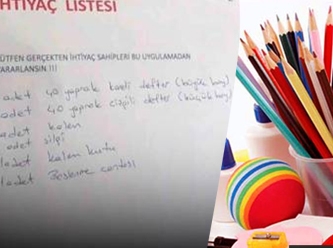 HTİYAÇ LİSTESİ
ÜTFEN GERÇEKTEN İHTİYAÇ SAHİPLERİ BU UYGULAMADAN
ARARLANSIN !!!
adet 40 yaprak kareli defter (küçük boy)
adet 40 yaprak çizgili defter (küçük boy)
adet kalem
adet silgi
adet kalem kutu
adet Beslenme çantası